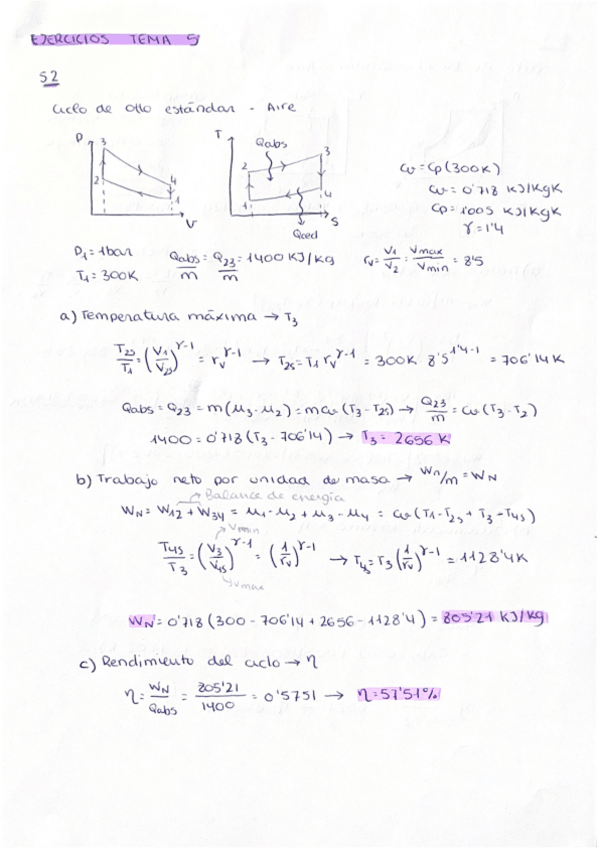 EJERCICIOS TEMA 5
52
Ciclo de Otto estándar - Aire
P 3 2 4 1 V
T Qabs 3 2 4 1 S Qced
Cv = Cp (300K)
Cv = 0'718 KJ/KgK
Cp = 1005 KJ/KgK
γ = 1'4
P1 = 1bar
T1 = 300K
Qabs/m = Q23/m = 1400 KJ/kg
rv = V1/V2 = Vmax/Vmin = 8'5
a) Temperatura máxima → T3
T2s/T1 = (V1/V2s)^γ-1 = rv^γ-1 → T2s = T1 rv^γ-1 = 300K 8'5^1'4-1 = 706'14K
Qabs = Q23 = m(u3 - u2) = mcv (T3 - T2s) → Q23/m = cv (T3 - T2)
1400 = 0'718 (T3 - 706'14) → T3 = 2656 K
b) Trabajo neto por unidad de masa → Wn/m = WN
Balance de energía
WN = W12 + W34 = u1 - u2 + u3 - u4 = cv (T1 - T2s + T3 - T4s)
Vmin
T4s/T3 = (V3/V4s)^γ-1 = (1/rv)^γ-1 → T4s = T3 (1/rv)^γ-1 = 1128'4K
Vmax
WN = 0'718 (300 - 706'14 + 2656 - 1128'4) = 805'21 KJ/kg
c) Rendimiento del ciclo → η
η = WN/Qabs = 805'21/1400 = 0'5751 → η = 57'51%